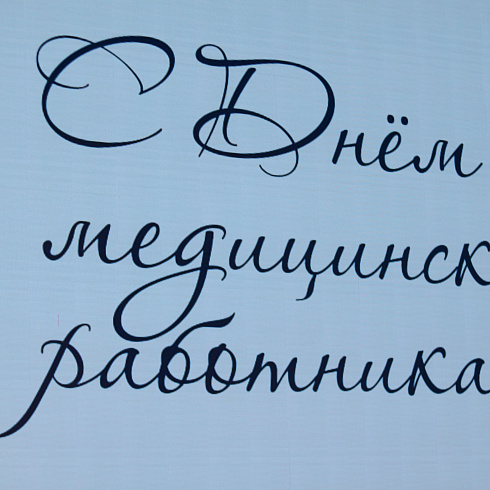 С Днём
медицинск
работника